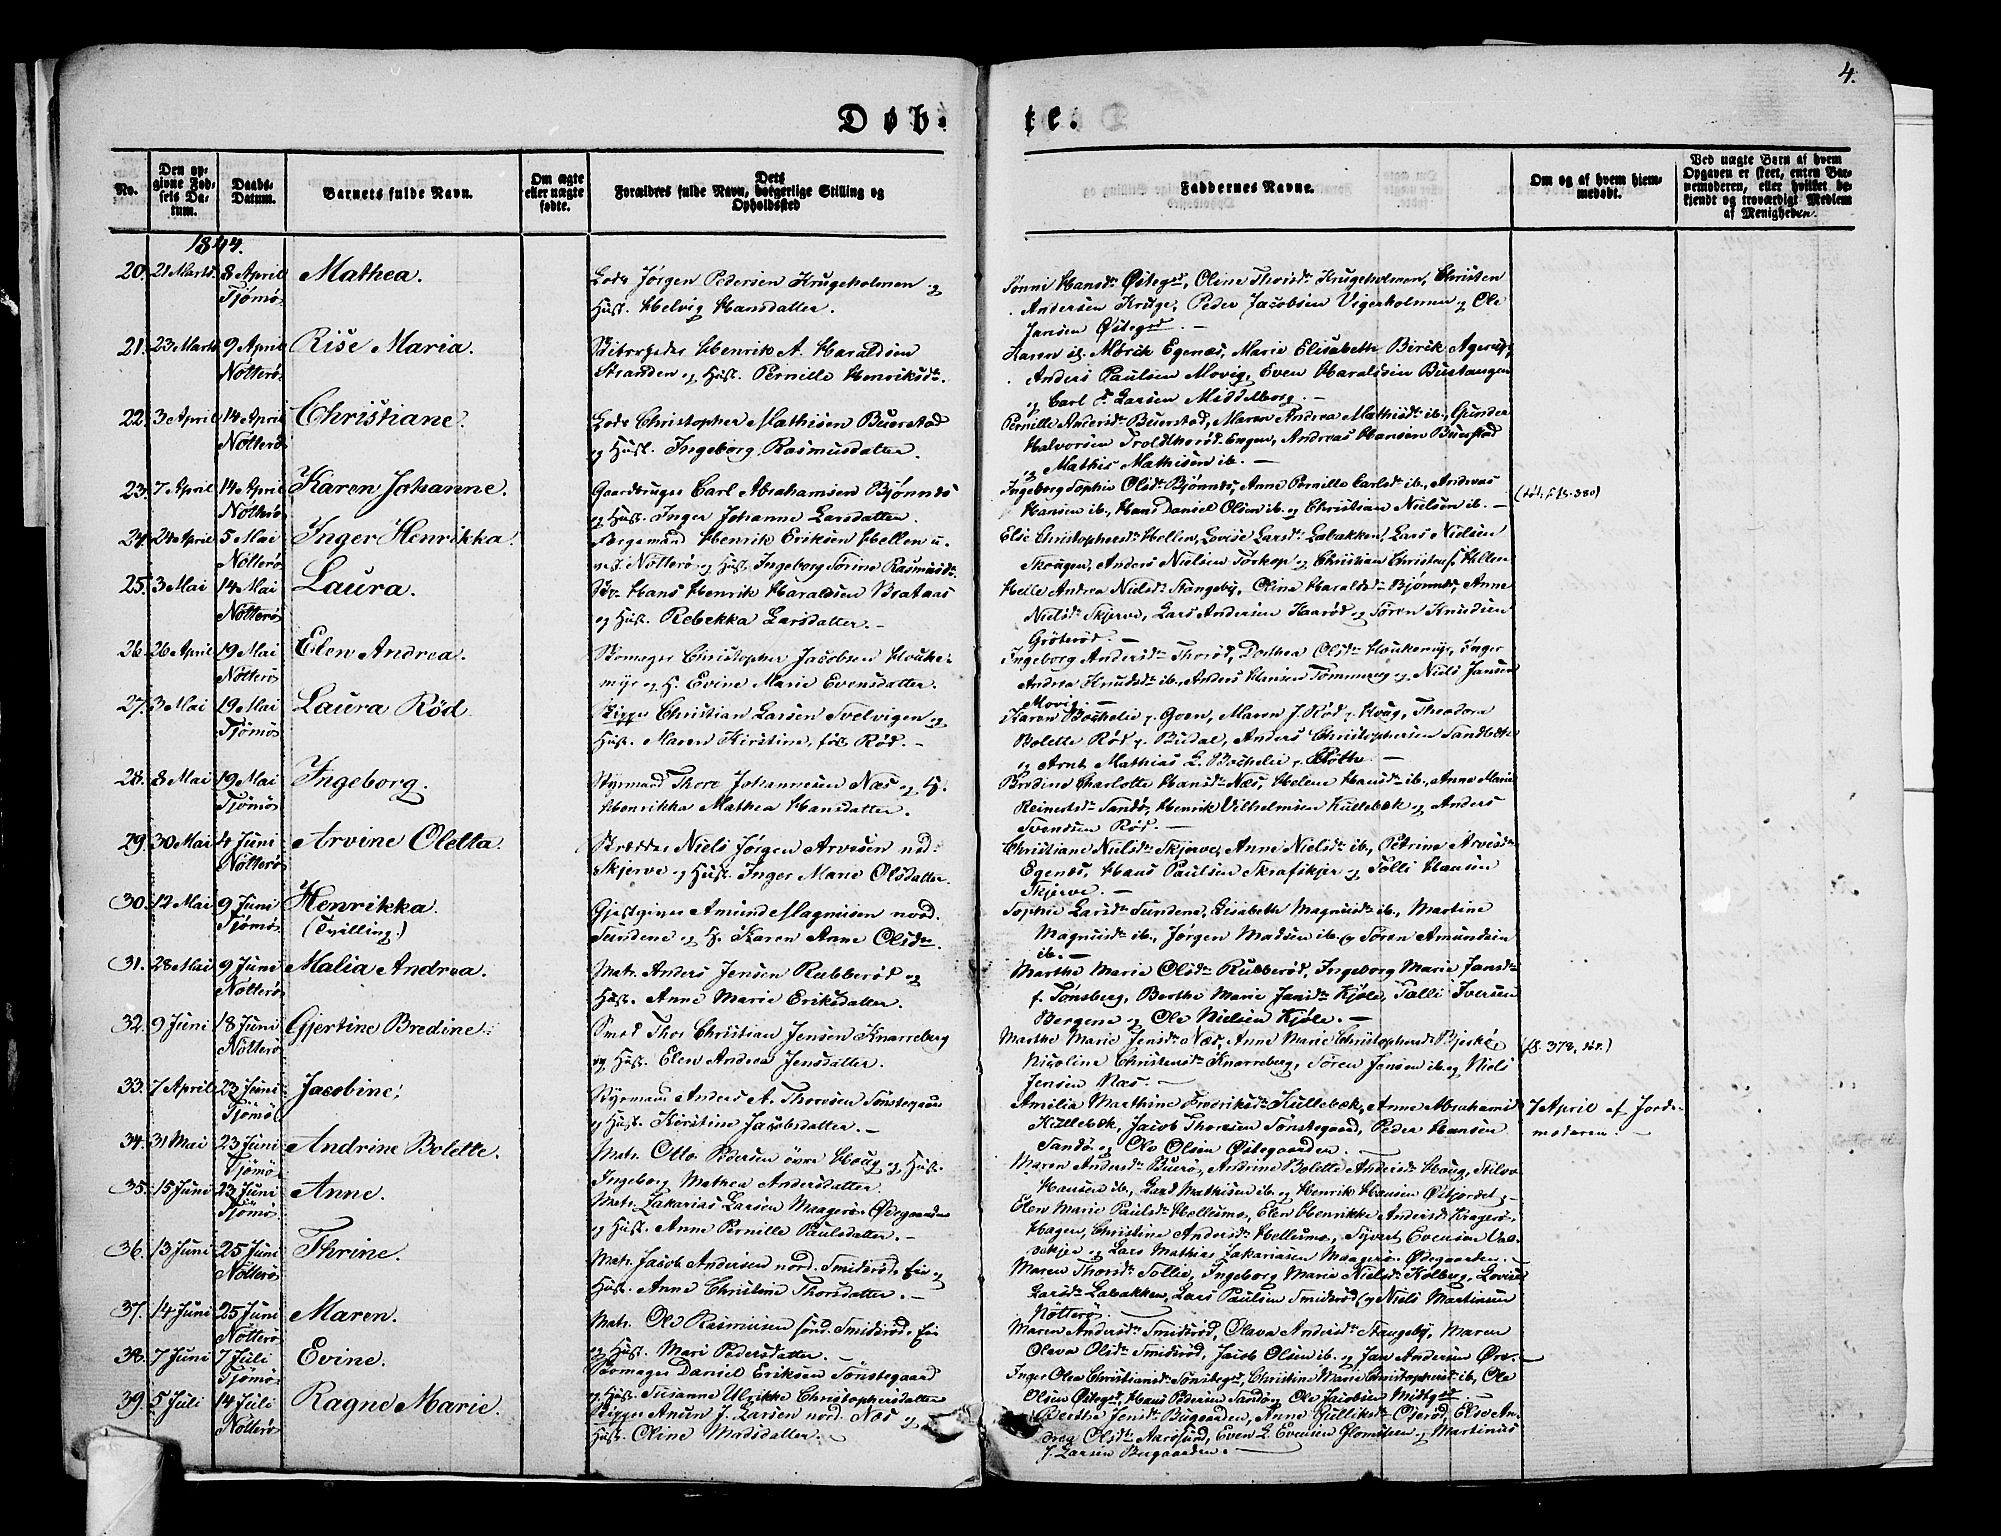 4.
Døb-
te.
No.
Den opgivne Fødsels Datum.
Daabs-Datum.
Barnets fulde Navn.
Om ægte eller uægte fødte.
Dets Forældres fulde Navn, borgerlige Stilling og Opholdssted
Faddernes Navne.
Om og af hvem hjemmedøbt.
Ved uægte Børn af hvem Opgaven er skeet, enten Barnemoderen, eller hvilket bekjendt og troværdigt Medlem af Menigheden.
1844.
20. 21 Marts. 8 April Tjømø Mathea.
Jørgen Pedersen Krugeholmen og
Hust. Helvig Hansdatter.
Sønni Hansd. Østegd, Oline Thorisd. Krugeholmen, Christen
Andersen Kruge, Peder Jacobsen Vigerholmen og Ole
Jansen Østegd. —
21. 23 Marts 9 April Nøtterø Rise Maria.
Henrik A. Haraldsen
Stranden og Hust. Pernille Henriksd.
Karen sl. Mørik Egenæs, Marie Elisabeth Birik Agerup,
Anders Paulsen Movig, Even Haraldsen Bustangen
og Carl F. Larsen Middelborg. —
22. 3 April 14 April Nøtterø Christiane.
Christopher Mathisen Buerstad
og Hust. Ingeborg Rasmusdatter.
Pernille Andersd. Buerstad, Maren Andrea Mathisd. ib., Gunder
Halvorsen Troldhorød-Engen, Andreas Hansen Buerstad
og Mathis Mathisen ib. —
23. 7 April 14 April Nøtterø Karen Johanne.
Gaardbruger Carl Abrahamsen Bjønnes
og Hust. Inger Johanne Larsdatter.
Ingeborg Sophie Olsd. Bjønnes, Anne Pernille Carlsd. ib., Andreas
Hansen ib., Hans Daniel Olsen ib. og Christian Nielsen ib. —
24. 24 April 5 Mai Nøtterø Inger Henrikka.
Henrik Eriksen Hellen
Nøtterø og Hust. Ingeborg Torine Rasmusd.
Else Christophersd. Hellen, Lovise Larsd. Labakken, Lars Nielsen
Skougen, Anders Nielsen Torkop og Christian Christens. Hellen
25. 3 Mai 14 Mai Nøtterø Laura.
Hans Henrik Haraldsen Brataas
og Hust. Rebekka Larsdatter. —
Helle Andrea Nielsd. Stangeby, Oline Haraldsd. Bjønnes, Anne
Nielsd. Skjerve, Lars Andersen Kaarød og Søren Knudsen
Grøterød. —
26. 26 April 19 Mai Nøtterø Elen Andrea.
Skomager Christopher Jacobsen Houke-
myr og H. Evine Marie Evensdatter.
Ingeborg Andersd. Thorød, Dorthea Olsd. Houkemyr, Inger
Andrea Knudsd. ib., Anders Hansen Tømmerøg og Niels Jansen
Movig. —
27. 3 Mai 19 Mai Tjømø Laura Rød
Skipper Christian Larsen Svelvigen og
Hust. Maren Kirstine, fød Rød. —
Karen Bachelie f. Goen, Maren J. Rød f. Houg, Theodora
Bolette Rød f. Budal, Anders Christophersen Sandbæk
og Arnt Mathias L. Bachelie f. Røtti. —
28. 8 Mai 19 Mai Tjømø Ingeborg.
Styrmand Thore Johannesen Næs og H.
Henrikka Mathea Hansdatter.
Bredine Charlotte Hansd. Næs, Helene Hansd. ib., Anne Marie
Reinertsd. Sandø, Henrik Vilhelmsen Kullebæk og Anders
Svendsen Rød. —
29. 30 Mai 4 Juni Nøtterø Arvine Oletta.
Skrædder Niels Jørgen Arvesen ned.
Skjerve og Hust. Inger Marie Olsdatter.
Christiane Nielsd. Skjerve, Anne Nielsd. ib., Petrine Arvesd.
Egenæs, Hans Paulsen Skrafskjer og Tolli Hansen
Skjerve. —
30. 12 Mai 9 Juni Tjømø Henrikka.
(Tvilling.)
Gjestgiver Amund Magnusen nord.
Sundene og H. Karen Anne Olsd.
Sophie Larsd. Sundene, Elisabeth Magnusd. ib., Martine
Magnusd. ib., Jørgen Madsen ib. og Søren Amundsen
ib. —
31. 28 Mai 9 Juni Nøtterø Malia Andrea.
Matr. Anders Jensen Rubberød og
Hust. Anne Marie Eriksdatter.
Marthe Marie Olsd. Rubberød, Ingeborg Marie Jansd.
f. Tønsberg, Berthe Marie Jansd. Kjøle, Tolli Iversen
Bergene og Ole Nielsen Kjøle. —
32. 9 Juni 18 Juni Nøtterø Gjertine Bredine.
Smed Thor Christian Jensen Knarreberg
og Hust. Elen Andrea Jensdatter.
Marthe Marie Jensd. Næs, Anne Marie Christophersd.
Nicoline Christensd. Knarreberg, Søren Jensen ib. og Niels
Jensen Næs. —
33. 7 April 23 Juni Tjømø Jacobine.
Styrmand Anders A. Thoresen Sønstegaard
og Hust. Kirstine Jacobsdatter. —
Amilia Marthine Fredriksd. Kullebæk, Anne Abrahamsd.
Kullebæk, Jacob Thoresen Sønstegaard, Peder Hansen
Sandø og Ole Olsen Østegaarden. —
7 April af Jorde-
moderen. —
34. 31 Mai 23 Juni Tjømø Andrine Bolette.
Matr. Otto Pedersen øvre Houg og Hust.
Ingeborg Mathea Andersdatter.
Maren Andersd. Buerø, Andrine Bolette Andersd. Houg,
Hansen ib., Lars Mathisen ib. og Henrik Hansen Østjordet. —
35. 15 Juni 23 Juni Tjømø Anne.
Matr. Zakarias Larsen Maagerø-Ødegaarden
og Hust. Anne Pernille Paulsdatter. —
Elen Marie Paulsd. Hellesmo, Elen Henrikke Andersd. Kragerø,
Hagen, Christine Andersd. Hellesmo, Syvert Evensen
og Lars Mathias Zakariasen Maagerø-Ødegaarden. —
36. 13 Juni 25 Juni Nøtterø Thrine.
Matr. Jacob Andersen nord. Smidsrød, Eie og
Hust. Anne Christine Thorsdatter. —
Maren Thorsd. Tollie, Ingeborg Marie Nielsd. Kolberg, Lovise
Larsd. Labakken, Lars Paulsen Smidsrød og Niels Martinsen
Nøtterø. —
37. 14 Juni 25 Juni Nøtterø Maren.
Matr. Ole Rasmusen sønd. Smidsrød, Eie
og Hust. Mari Pedersdatter. —
Maren Andersd. Smidsrød, Olava Andersd. Stangeby, Maren
Olava Olsd. Smidsrød, Jacob Olsen ib. og Jan Andersen Øre. —
38. 7 Juni 7 Juli Tjømø Evine.
Skomager Daniel Eriksen Sønstegaard
og Hust. Susanne Ulrikke Christophersdatter
Inger Olea Christiansd. Sønstegd, Christine Marie Christophersd. ib., Ole
Olsen Østegd, Hans Pedersen Sandø og Ole Jacobsen Midtgd. —
39. 5 Juli 14 Juli Nøtterø Ragne Marie.
Skipper Anun J. Larsen nord. Næs og
Hust. Oline Madsdatter. —
Berthe Jensd. Bugaarden, Anne Gulliksd. Oserød, Else An-
drea Olsd. Aarøsund, Even L. Evensen Glomsten og Martinus
J. Larsen Buegaarden. —